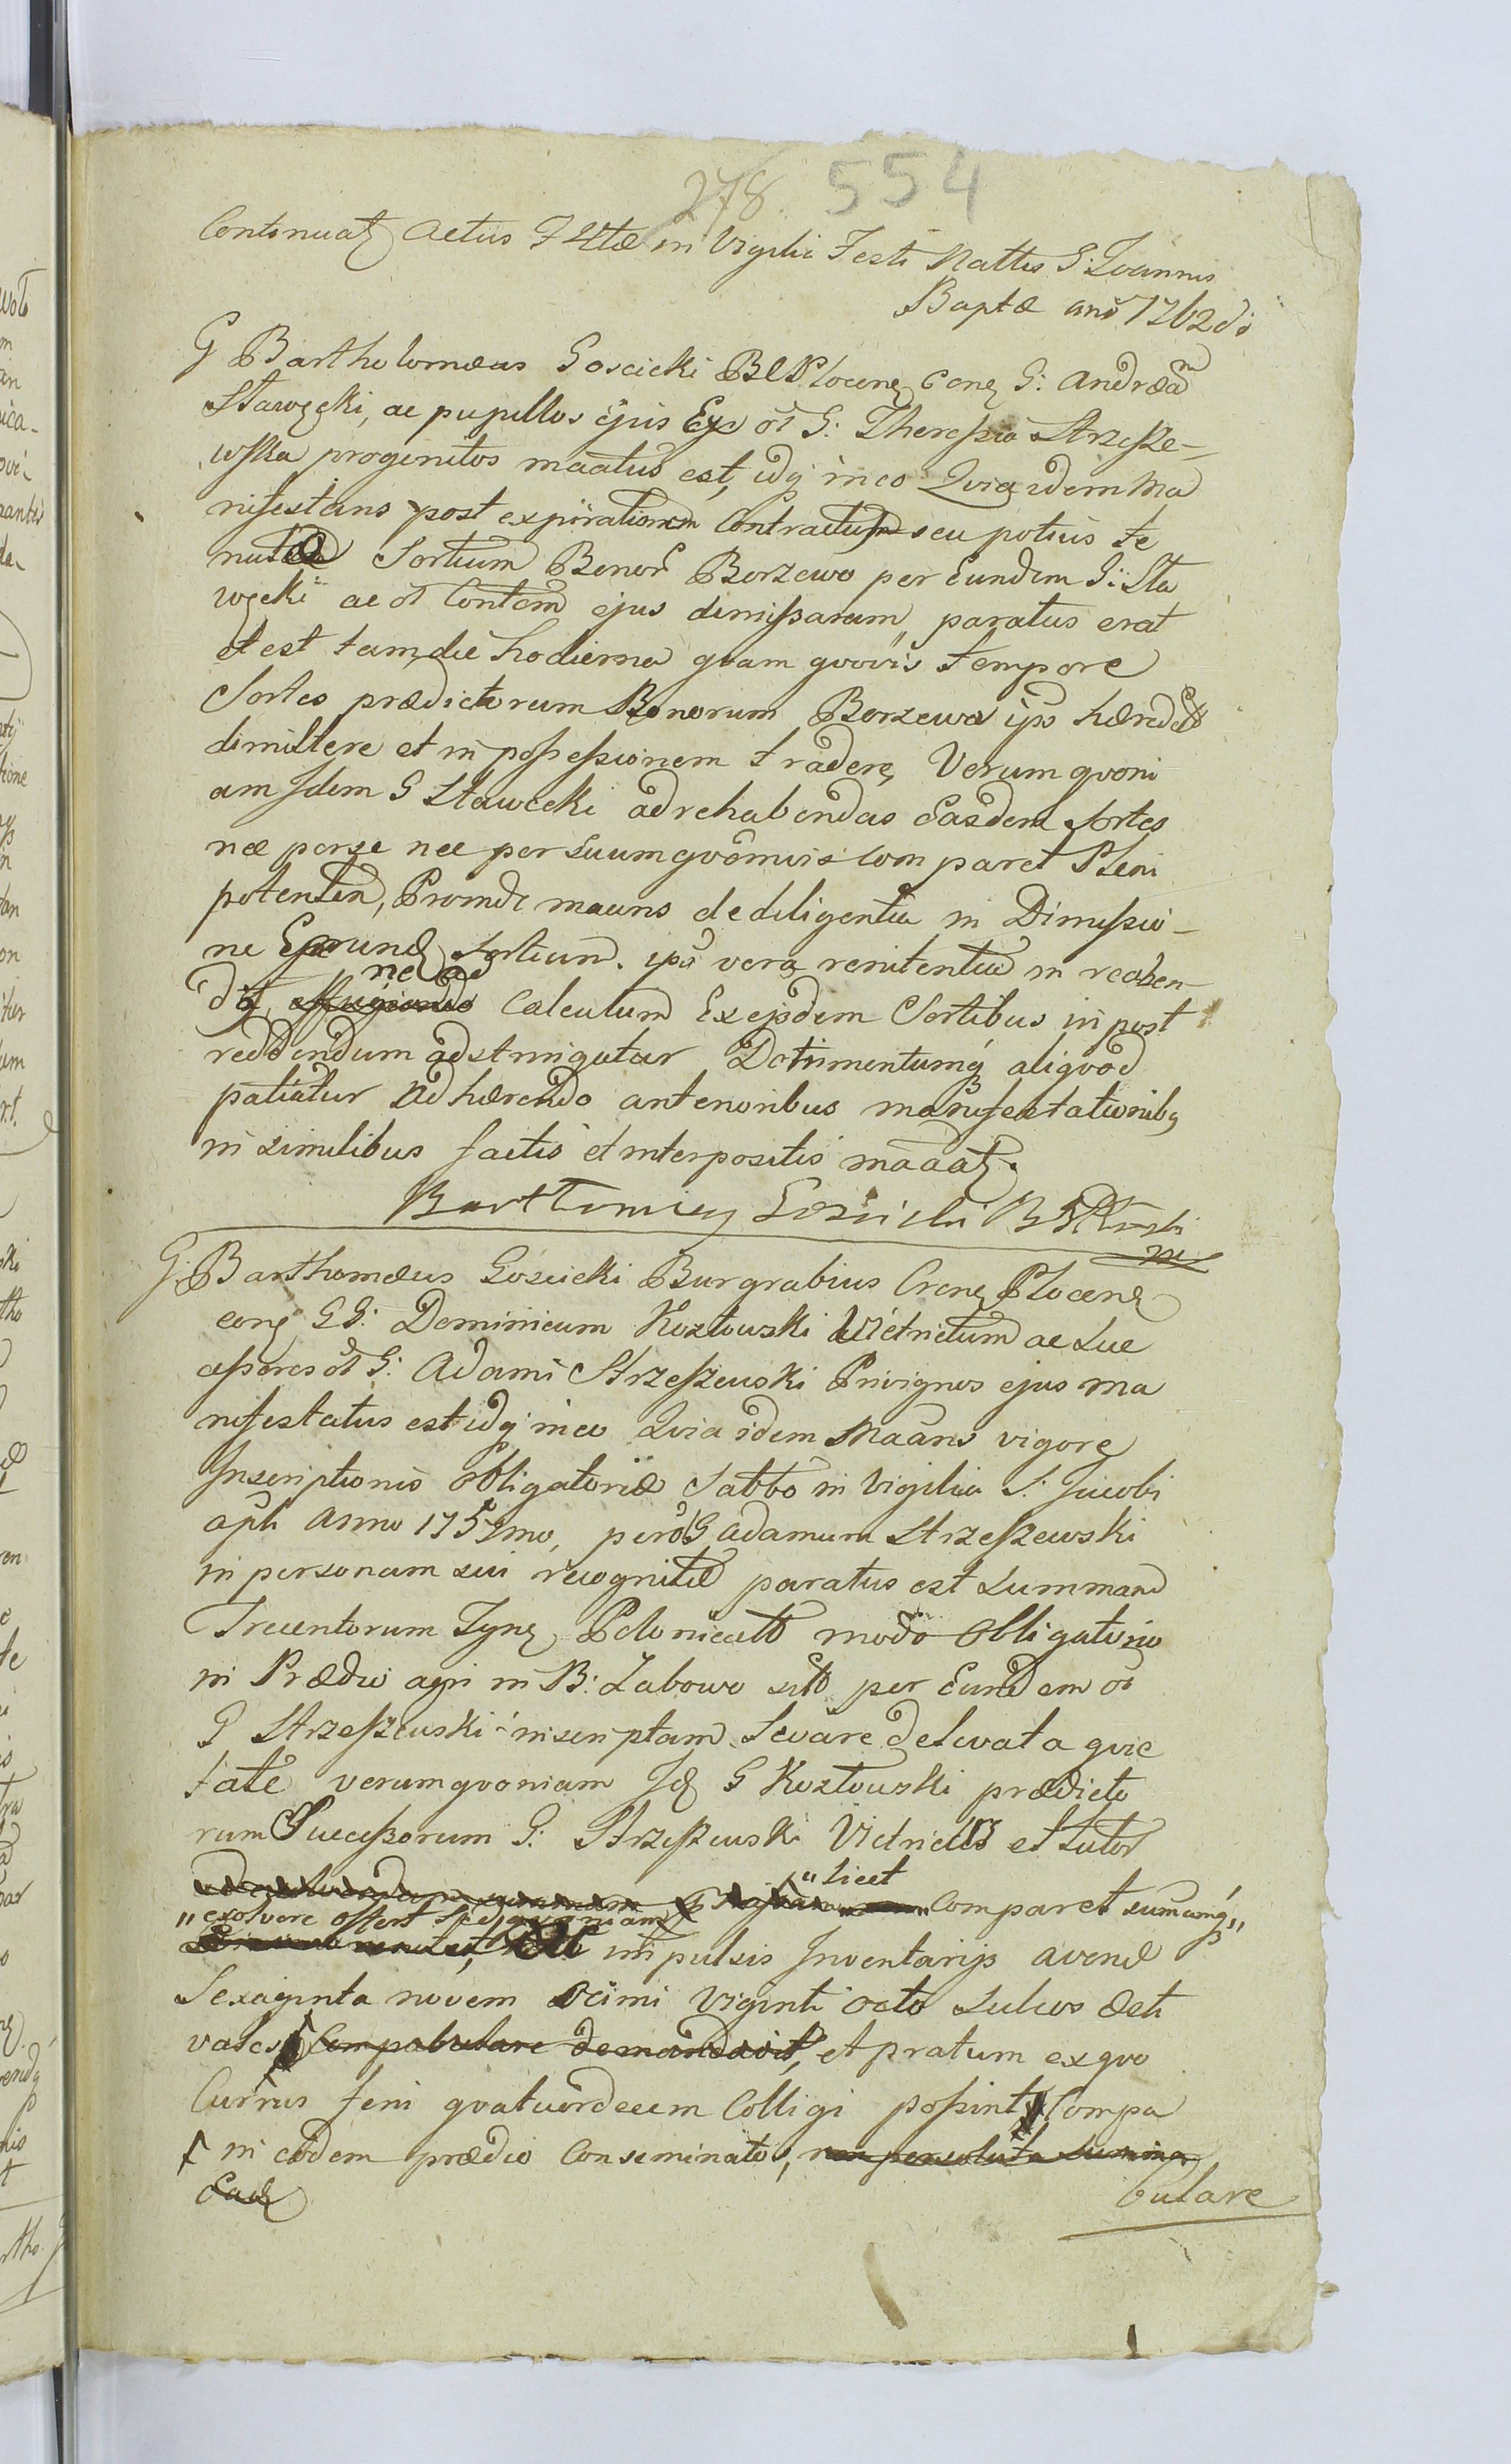 278 554
Continuatȝ Actus F 4tæ in Vigilia Festi Nattis S: Joannis
Baptæ anõ 1762dõ
G Bartholomæus Goscicki BCPlocenȝ conȝ G: Andræam
Stawęcki, ac pupillos ejus Ex ol G: Theresia Strzesze-
wska progenitos maatus est, idq; in eo Quia idem Ma
nifestans post expirationem Contractus seu potius te
nutæ Sortium Bonor Borzewo per Eundem G: Sta
węcki ac ol Contem ejus dimissarum, paratus erat
et est tam die hodierna qvam qvovis tempore
Sortes prædictorum Bonorum Borzewo ips hæred
dimittere et in possessionem tradere, Verum qvoni
am Idem G Stawecki ad rehabendas Easdem sortes
nec per se nec per suum qvemvis comparet Pleni
potentem, Proinde maans de diligentia in Dimissio-
ne Earund Sortium. ipõ vero renitentia in reaben-
dis, ne ad calculum Ex ejsdem Sortibus in post
reddendum adstringatur Detrimentumq; aliqvod
patiatur Adhærendo anterioribus manifestationibq
in similibus factis et interpositis maaatȝ.
Bartłomiey Gościcki B G Płocki
m
G: Barthomæus Gościcki Burgrabius Crenȝ Plocenȝ
conȝ GG: Dominicum Kozłowski Victricum ac Suc
cessores ol G: Adami Strzeszewski Privignos ejus ma
nifestatus est idq; in eo Quia idem Maans vigore
Inscriptionis Obligatoriæ Sabbo in Vigilia S: Jacobi
apli Anno 1757mo, per ol G Adamum Strzeszewski
in personam sui recognitæ paratus est Summam
Trecentorum Tynȝ Polonical modo Obligatorio
in Prædio agri in B: Zabowo sit per Eundem ol
G Strzeszewski inscriptam Levare de levata qvie
tate verum qvoniam Id G Kozłowski prædicto
rum Successorum G: Strzeszewski Victricus et Tutor
"licet comparet sumamq;"
"exolvere offert sed qvoniam impulsis Inventarijs avenæ
Sexaginta novem ocimi Viginti octo Sulcos æsti
vales Compabulare demandavit, et pratum ex qvo
Currus feni qvatuordecem Colligi possint Compa
in eodem prædio Conseminatos, non persoluta summa
Ead bulare